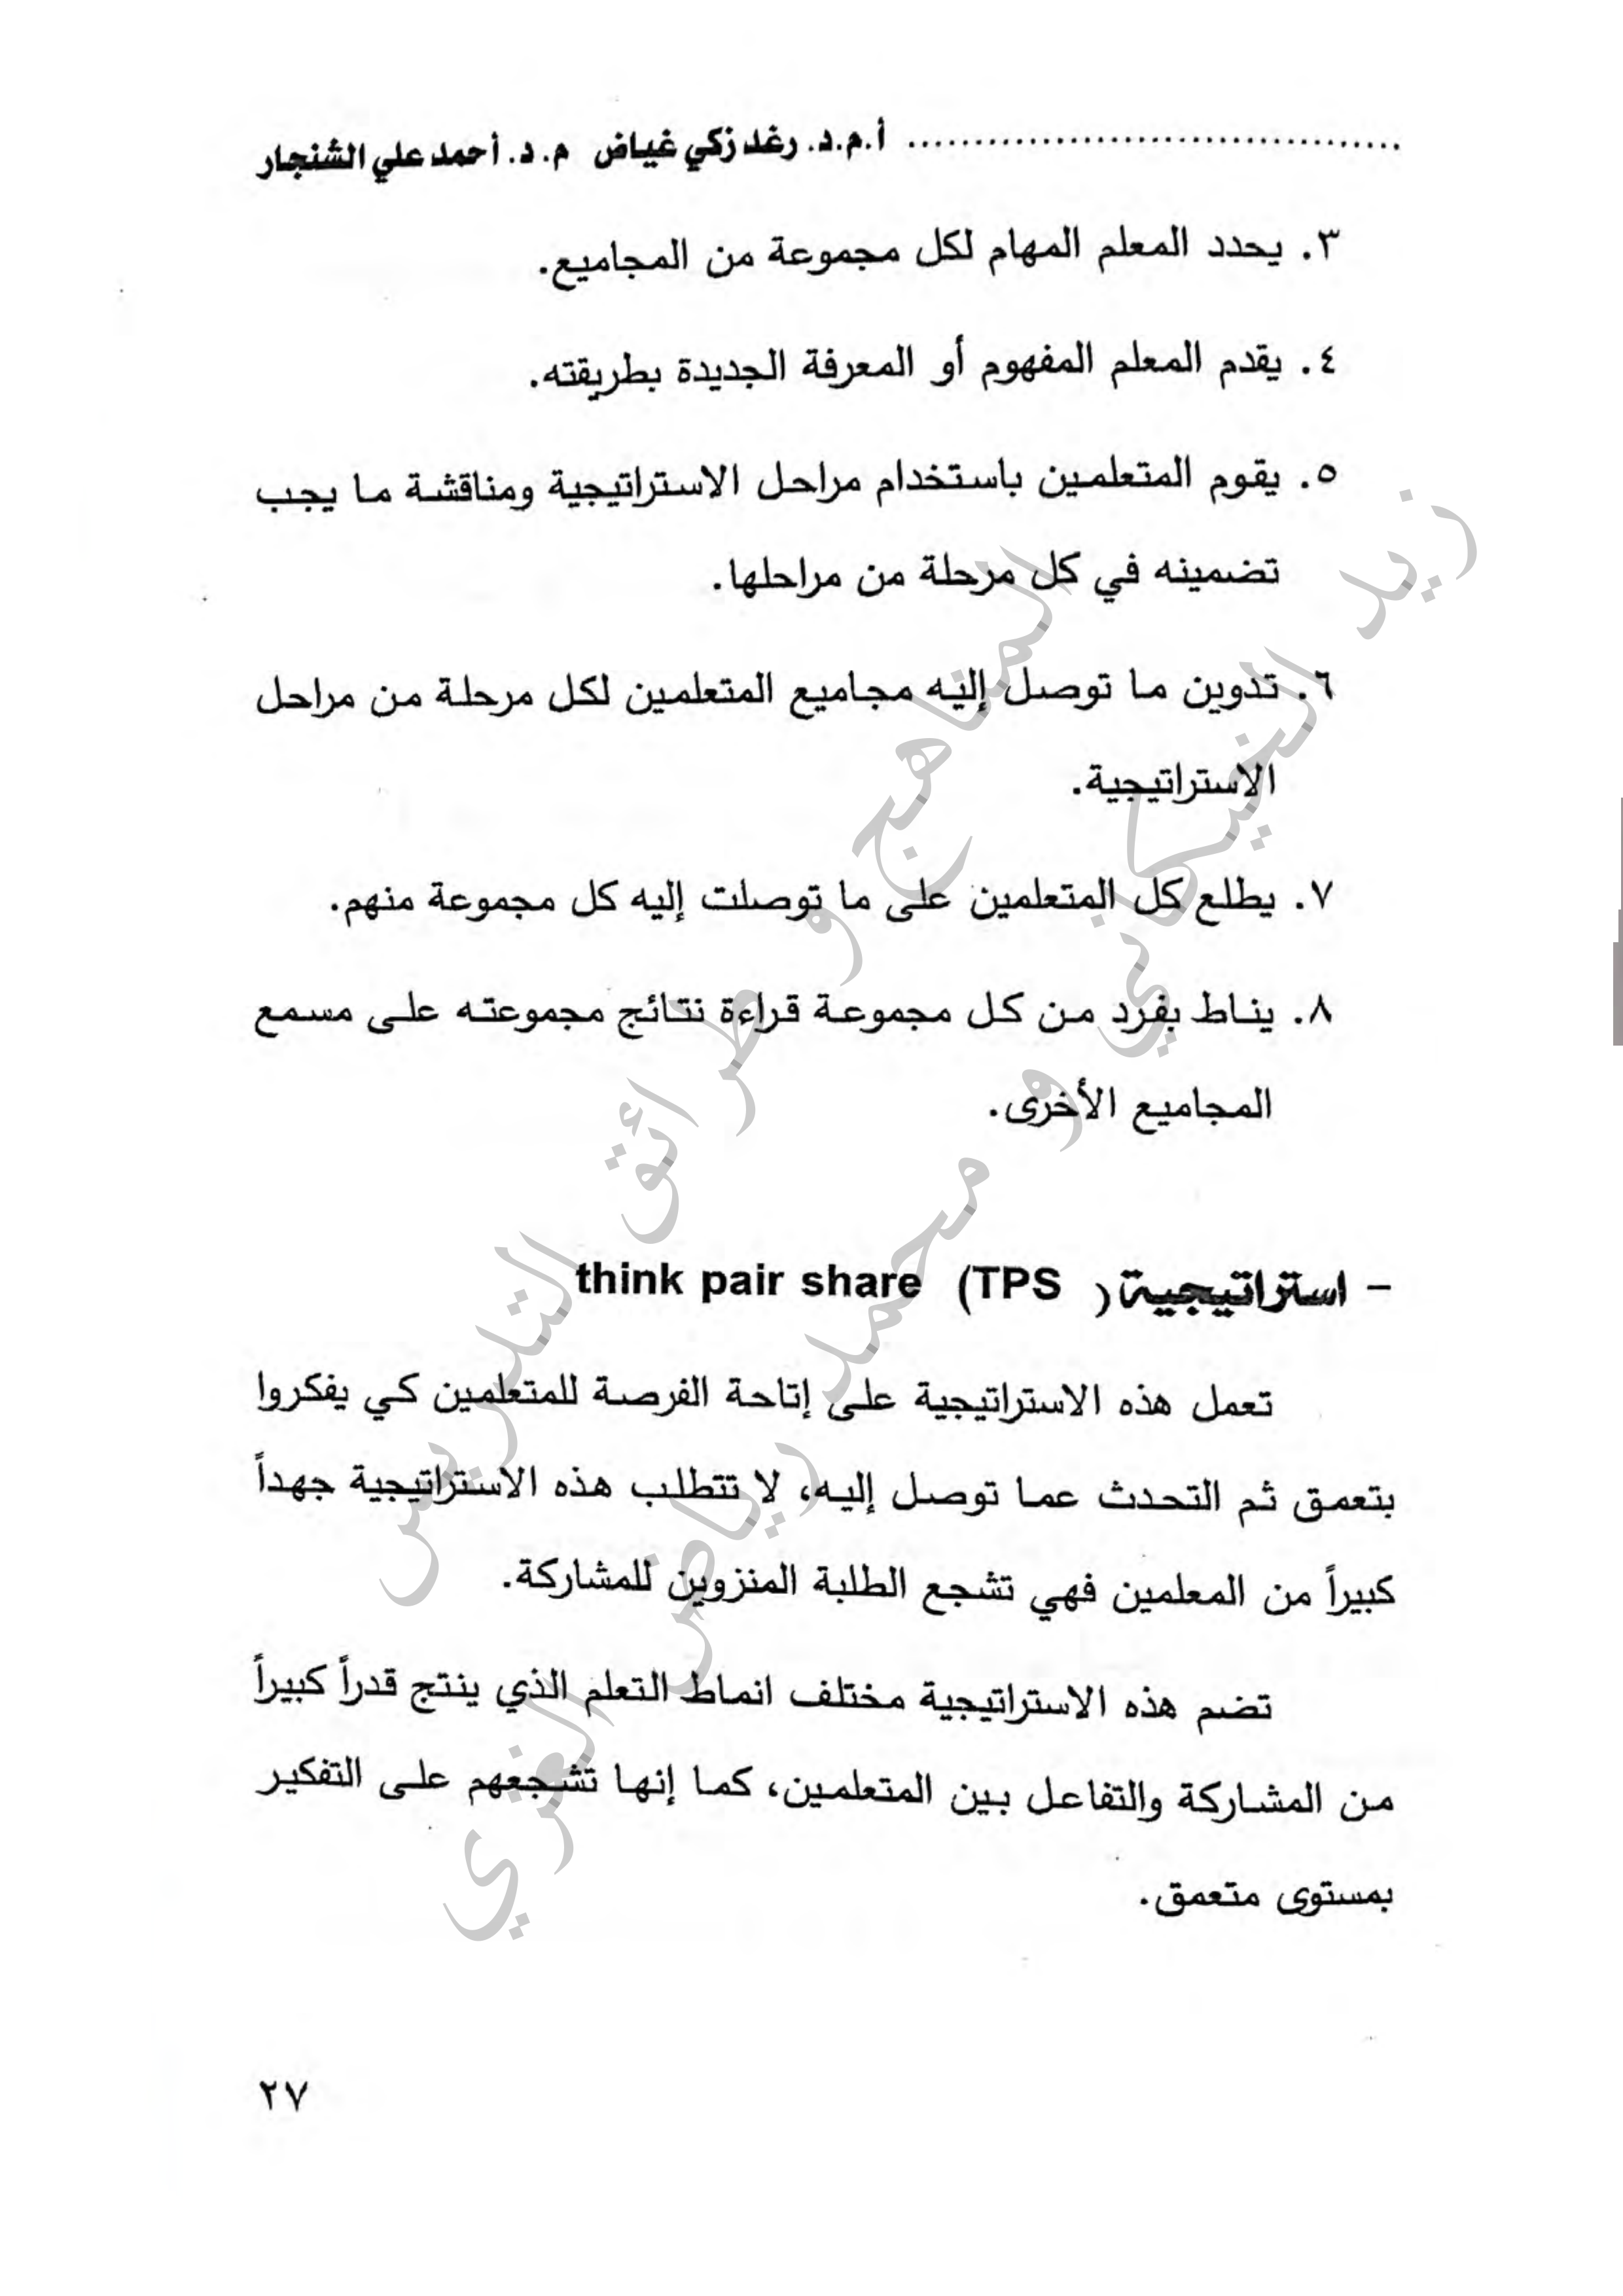 ........................................ أ.م.د. رغد زكي غياض م. د. أحمد علي الشنجار
٣. يحدد المعلم المهام لكل مجموعة من المجاميع.
٤. يقدم المعلم المفهوم أو المعرفة الجديدة بطريقته.
٥. يقوم المتعلمين باستخدام مراحل الاستراتيجية ومناقشة ما يجب
تضمينه في كل مرحلة من مراحلها.
٦. تدوين ما توصل إليه مجاميع المتعلمين لكل مرحلة من مراحل
الاستراتيجية.
٧. يطلع كل المتعلمين على ما توصلت إليه كل مجموعة منهم.
٨. يناط بفرد من كل مجموعة قراءة نتائج مجموعته على مسمع
المجاميع الأخرى.
- استراتيجية ( TPS) think pair share
تعمل هذه الاستراتيجية على إتاحة الفرصة للمتعلمين كي يفكروا
بتعمق ثم التحدث عما توصل إليه، لا تتطلب هذه الاستراتيجية جهداً
كبيراً من المعلمين فهي تشجع الطلبة المنزوين للمشاركة.
تضم هذه الاستراتيجية مختلف انماط التعلم الذي ينتج قدراً كبيراً
من المشاركة والتفاعل بين المتعلمين، كما إنها تشجعهم على التفكير
بمستوى متعمق.
٢٧
المناهج و طرائق التدريس
زيد الخيكاني و محمد رياض الغزي